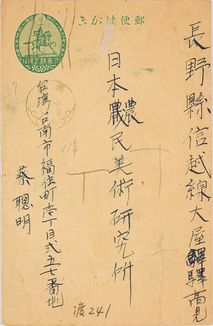 郵便はがき
長野縣信越線大屋驛高見
日本農民美術研究所
台湾台南市福住町壱丁目弐五七番地
蔡聰明
渡241